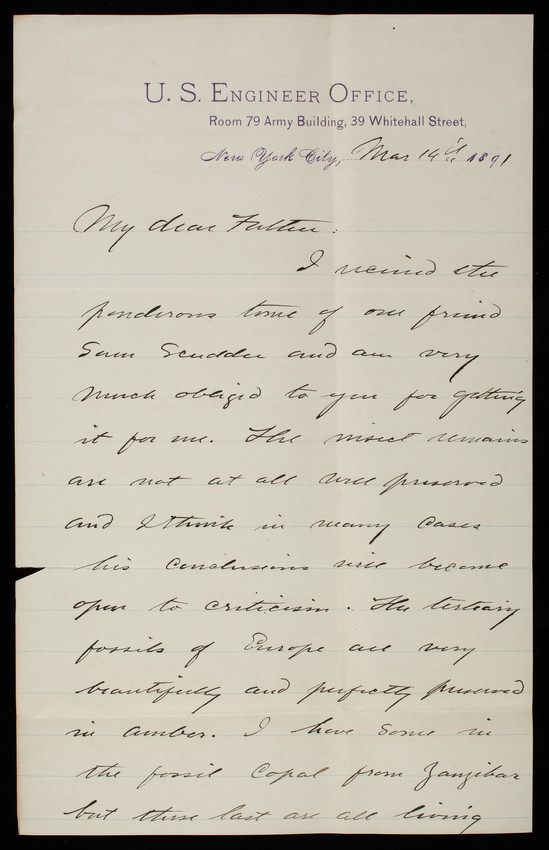 U. S. Engineer Office,
Room 79 Army Building, 39 Whitehall Street,
New York City, Mar 14th 1891
My dear Father:
I received the
ponderous tome of our friend
Sam Scudder and am very
much obliged to you for getting
it for me. The insect remains
are not at all well preserved
and I think in many cases
his conclusions will become
open to criticism. The tertiary
fossils of Europe are very
beautifully and perfectly preserved
in amber. I have some in
the fossil Copal from Zanzibar
but these last are all living